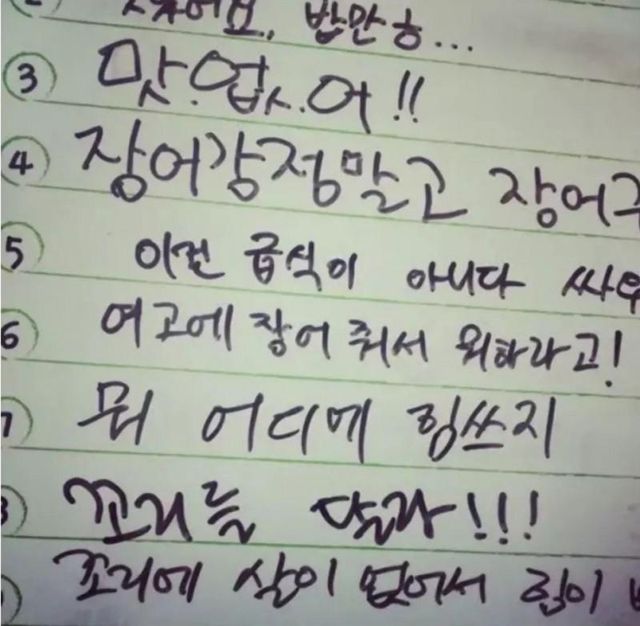 반만ㅎ...
③ 맛.없.어!!
④ 장어강정말고 장어
5 이건 급식이 아니다
6 여고에 장어 줘서 뭐하라고!
뭐 어디에 힘쓰지
꼬리를 달라!!!
꼬리에 살이 없어서 힘이